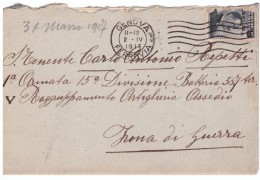 31 Marzo 1917
GENOVA
FERROVIA
11-12
2-IV
1917
S. Tenente Carlo Antonio Repetti
1ª Armata 15ª Divisione Battria
V Raggruppamento Artiglieria Assedio
Zona di Guerra